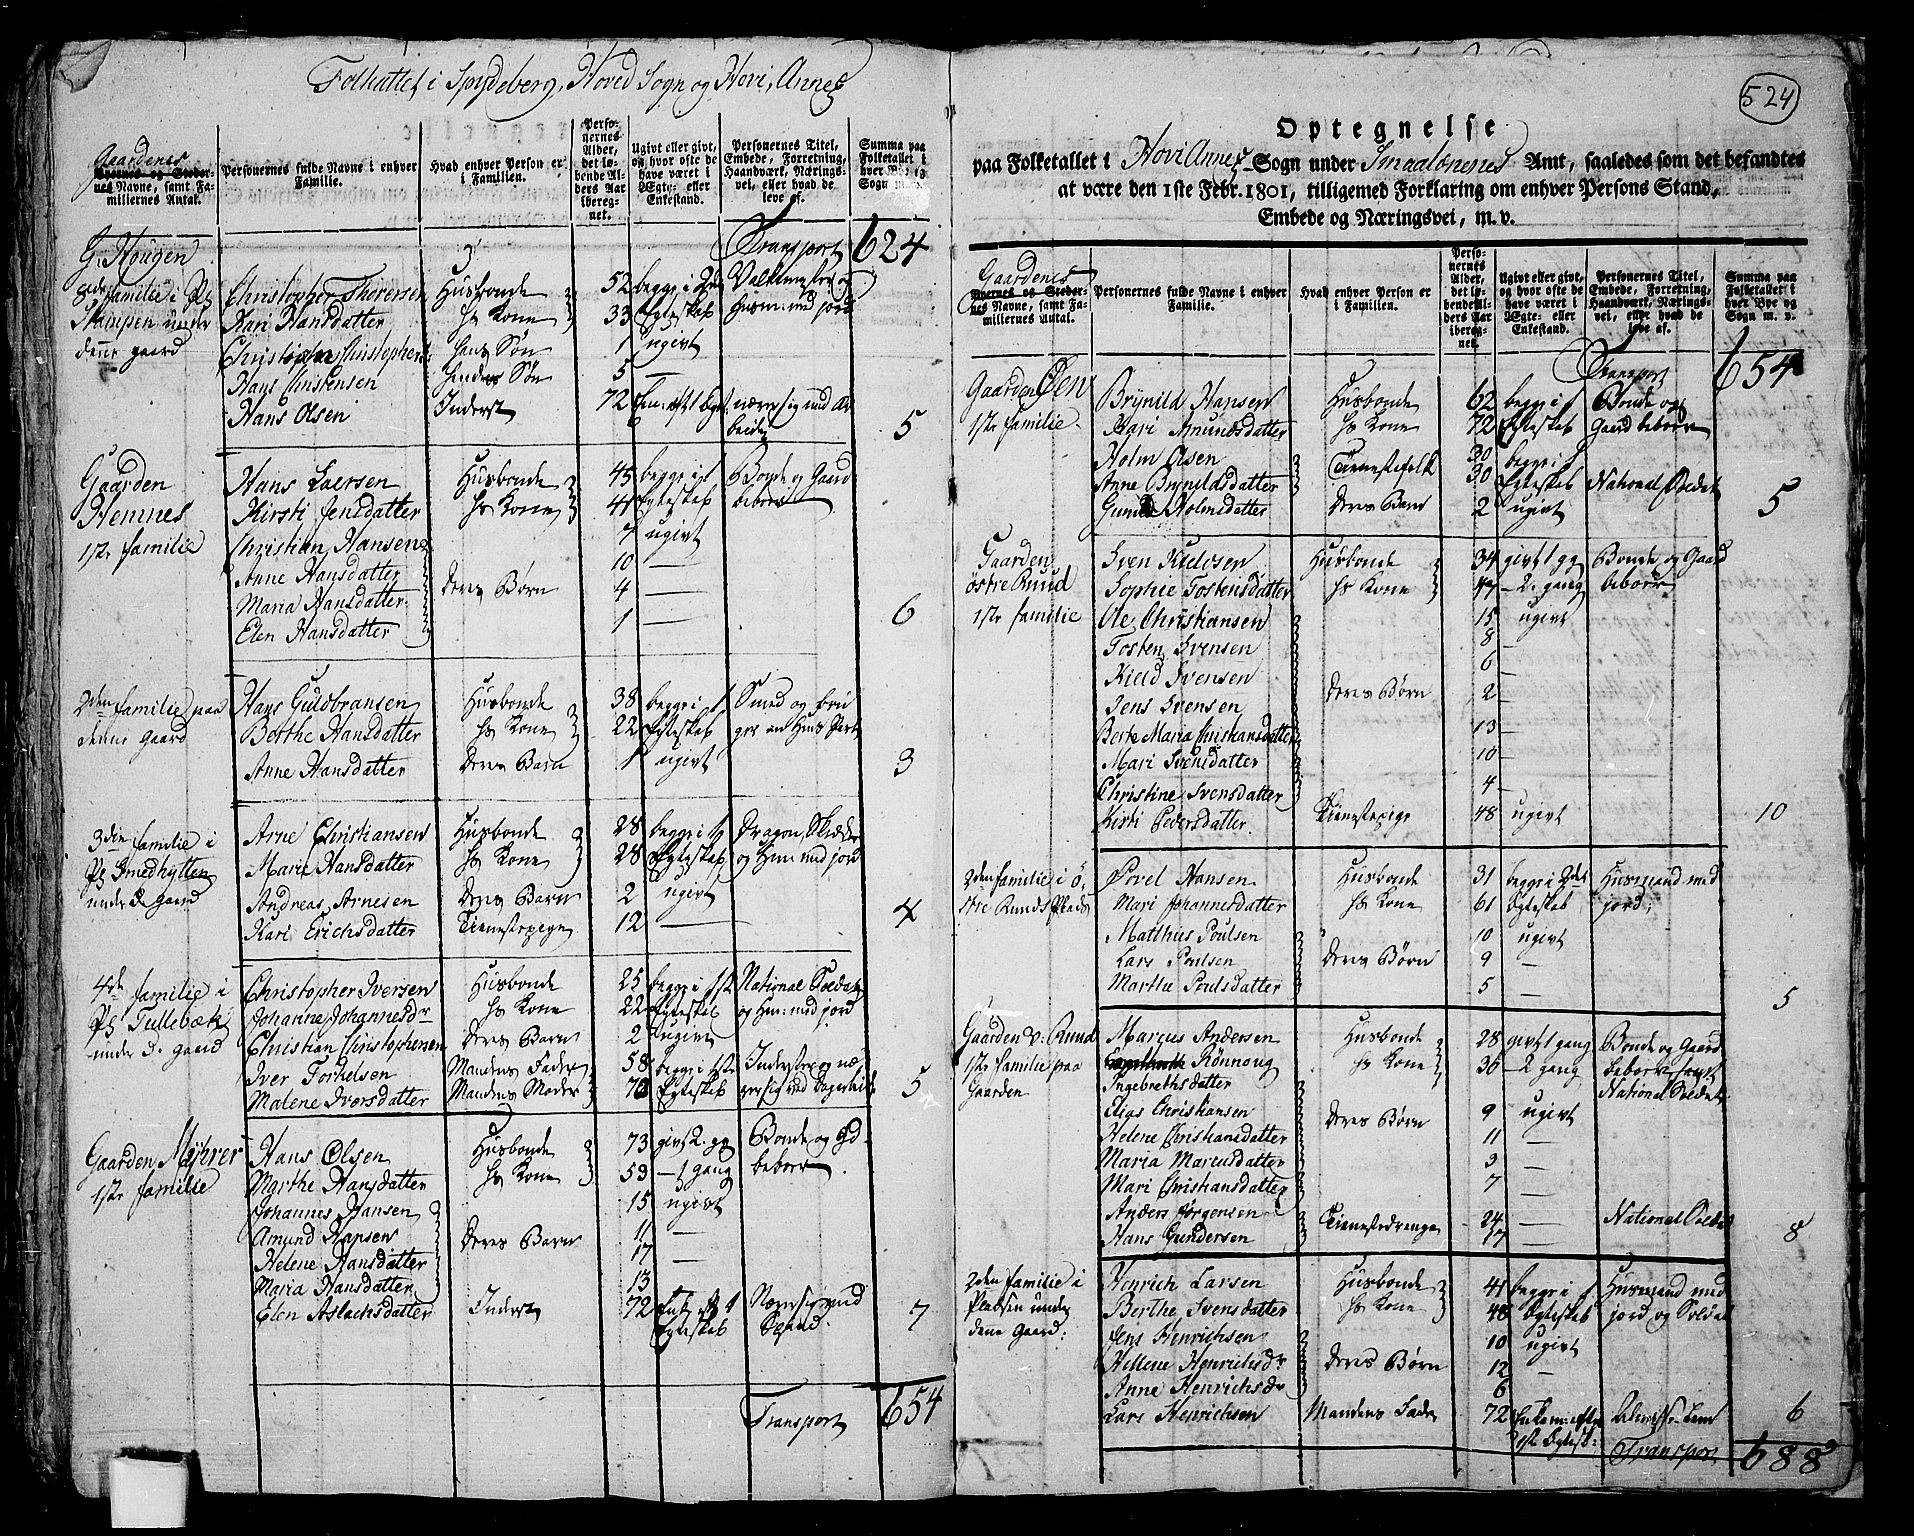 Folkattet i Spydeberg, Hoved Sogn og Hovi, Annex
Gaardenes
Byernes og Stedernes Navne, samt Familiernes Antal.
Personernes fulde Navne i enhver Familie.
Hvad enhver Person er i Familien.
Personernes Alder, det løbende Alders Aar iberegnet.
Ugivt eller givt, og hvor ofte de have været i Ægte- eller Enkestand.
Personernes Titel, Embede, Forretning, Haandværk, Næringsvei, eller hvad de leve af.
Summa paa Folketallet i hver Bye og Sogn m. v.
Transport 624
G. Hougen
2den familie i Pl
Stampen under
denne gaard
Christopher Thoresen Husbonde 52 begge i 2det
Kari Hansdatter hs Kone 33 Egteskab Husm med jord
Christian Christophers: hans Søn 1 ugivt
Hans Christensen hendes Søn 5 —
Hans Olsen Inderst 72 nærer sig med Ar
beide 5
Gaarden
Hemnes
1ste familie
Hans Laersen Husbonde 45 begge i 1 Bonde og Gaard
Kirsti Jensdatter hs Kone 41 Egteskab beboer
Christian Hansen 7 ugivt
Anne Hansdatter 10 —
Maria Hansdatter deres Børn 4 —
Elen Hansdatter 1 — 6
2den familie paa
denne gaard
Hans Guldbransen Husbonde 38 begge i 1 Smed og bru
Berthe Hansdatter hs Kone 22 Egteskab ger en Huus Part
Anne Hansdatter Deres Barn 1 ugivt 3
3die familie i
Pl Smedhytten
under d. gaard
Arne Christiansen Husbonde 28 begge i 1 Dragon, Skrædder
Marie Hansdatter hs Kone 28 Egteskab og Husm: med jord
Andreas Arnesen Deres Barn 2 ugivt
Kari Erichsdatter Tienestepige 12 — 4
4de familie i
Pl Tullebæk
under d. gaard
Christopher Iversen Husbonde 25 begge i 1ste National Soldat
Johanne Johannesdr hs Kone 22 Egteskab og Husm: med jord
Christian Christophersen Deres Barn 2 ugivt
Iver Torkelsen Mandens Fader 58 begge i 1ste Inderster og næ
Malene Iversdatter Mandens Moder 70 Egteskab rer sig ved Dagarbeide 5
Gaarden Myhrer
1ste familie
Hans Olsen Husbonde 73 givt 2. gg Bonde og Gd-
Marthe Hansdatter hs Kone 59 — 1 gang beboer
Johannes Hansen 15 ugivt
Amund Hansen 11 —
Helene Hansdatter Deres Børn 17 —
Maria Hansdatter 13
Elen Aslachsdatter Inderst 72 Enke eft 1 Nærer sig ved
Egteskab Spind. 7
Transport 654
524
Optegnelse
paa Folketallet i Hovi Annex Sogn under Smaalenenes Amt, saaledes som det befandtes
at være den 1ste Febr. 1801, tilligemed Forklaring om enhver Persons Stand,
Embede og Næringsvei, m. v.
Gaardenes
Byernes og Stedernes Navne, samt Familiernes Antal.
Personernes fulde Navne i enhver Familie.
Hvad enhver Person er i Familien.
Personernes Alder, det løbende Alders Aar iberegnet.
Ugivt eller givt, og hvor ofte de have været i Ægte- eller Enkestand.
Personernes Titel, Embede, Forretning, Haandværk, Næringsvei, eller hvad de leve af.
Summa paa Folketallet i hver Bye og Sogn m. v.
Transport 654
Gaarden Øen
1ste familie
Brynild Hansen Husbonde 62 begge i 1 Bonde og
Kari Amundsdatter hs Kone 72 Egteskab Gaard beboer
Holm Olsen Tienestefolk 30 begge i 1
Anne Brynildsdatter 30 Egteskab National Soldat
Holmsdatter deres Barn 2 ugivt 5
Gaarden
østre Rund
1ste familie
Sven Kieldsen Husbonde 34 givt 1 gg Bonde og Gaard
Sophie Tostensdatter hs Kone 47 — 2. gang beboer
Ole Christiansen 15 ugivt
Tosten Svensen 8
Kield Svensen 6 —
Jens Svensen deres Børn 2 —
Berte Maria Christiansdatter 13 —
Mari Svensdatter 10 —
Christine Svensdatter 4 —
Kisti Pedersdatter Tienestepige 48 ugivt 10
2den familie i ø,
stre Runds Plads
Povel Hansen Husbonde 31 begge i 2det Husmand med
Mari Johannesdatter hs Kone 61 Egteskab jord
Matthis Poulsen 10 ugivt
Lars Poulsen deres Børn 9 —
Marthe Poulsdatter 5 — 5
Gaarden v. Rund
1ste familie paa
Gaarden
Marcus Andersen Husbonde 28 givt 1 gang Bonde og Gaard
Rönnoug hs Kone 36 — 2 gang beboer samt
Ingebrethsdatter National Soldat
Elias Christiansen 9 ugivt
Helene Christiansdatter deres Børn 11 —
Maria Marcusdatter 3 —
Mari Christiansdatter 7 —
Anders Jørgensen Tienestedrenge 24 — National Soldat
Hans Gundersen 17 — 8
2den familie i
Pladsen under
denne Gaard.
Henrich Larsen Husbonde 41 begge i 1 Husmand med
Berthe Svensdatter hs Kone 48 Egteskab jord og Soldat
Jens Henrichsen 10 ugivt
Hellene Henrichsdr deres Børn 12 —
Anne Henrichsdr 6
Lars Henrichsen Mandens Fader 72 Enkem: efter Almisse Lem 6
1st Egtesk:
Transport 688